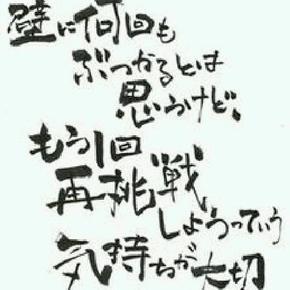 壁に何回も
ぶつかるとは
思うけど、
もう1回
再挑戦
しようっていう
気持ちが大切